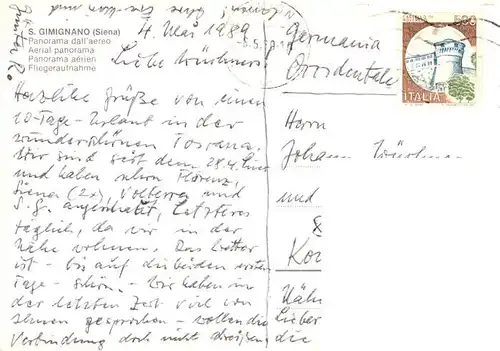 S. GIMIGNANO (Siena)
Panorama dall'aereo
Aerial panorama
Panorama aérien
Fliegeraufnahme
4. Mai 1989
Liebe
Herzliche Grüße von einem
10-Tage-Urlaub in der
wunderschönen Toscana.
Wir sind seit dem 28.4. hier
und haben schon Florenz,
Siena (2x), Volterra und
S.G. angeschaut, letzteres
täglich, da wir in der
Nähe wohnen. Das Wetter
ist - bis auf die beiden ersten
Tage - schön. - Wir haben in
der letzten Zeit viel von
Ihnen gesprochen - wollen die
Verbindung doch nicht abreißen
Germania
Occidentale
ITALIA
Herrn
Johann
und
Nähe
Lieber
die